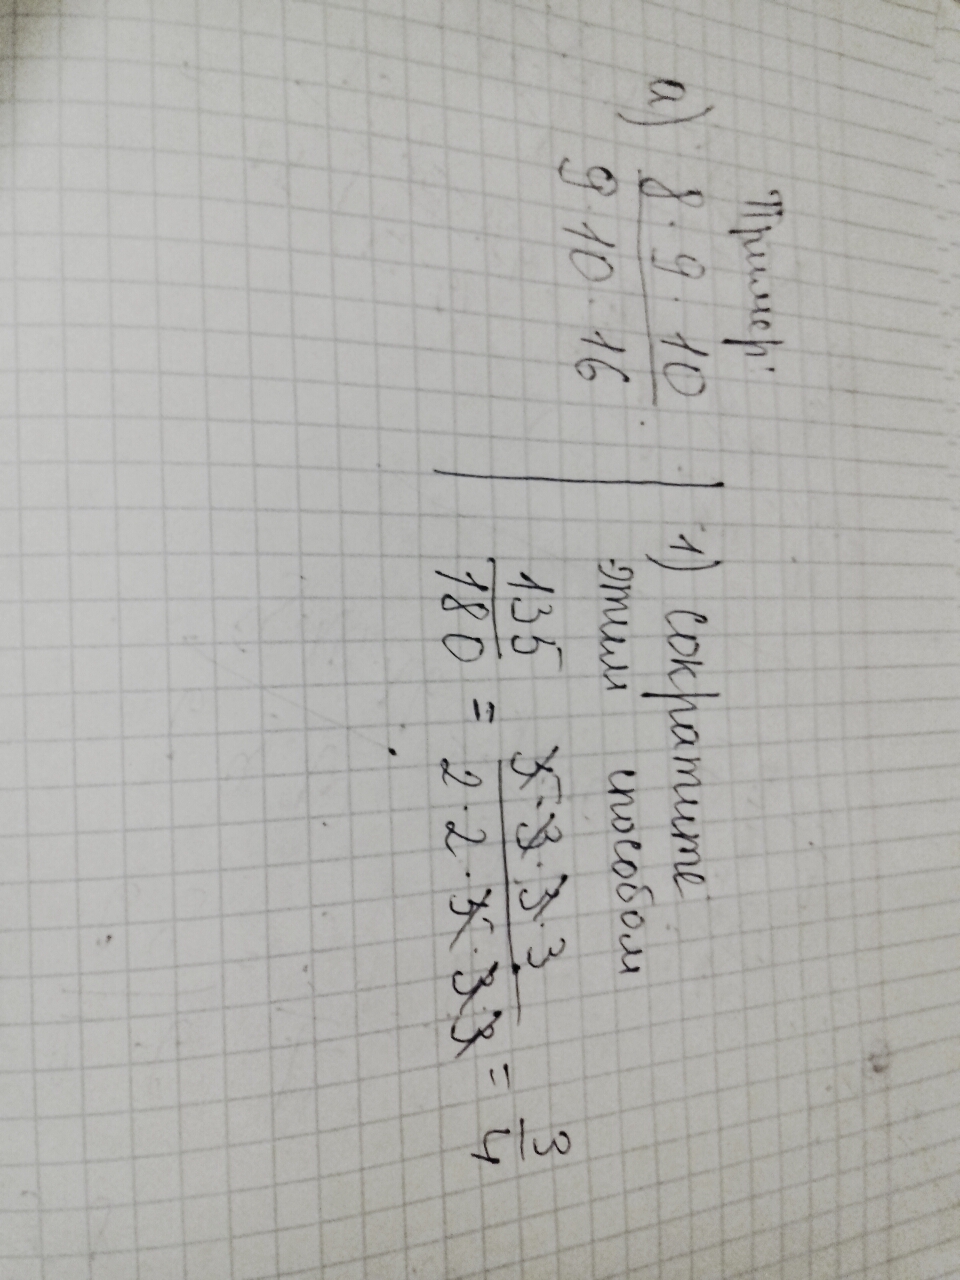 Пример:
а) 8 · 9 · 10
9 · 10 · 16
1) Сократите
этим способом
135 / 180 = 5 · 3 · 3 · 3 / 2 · 2 · 5 · 3 · 3 = 3 / 4